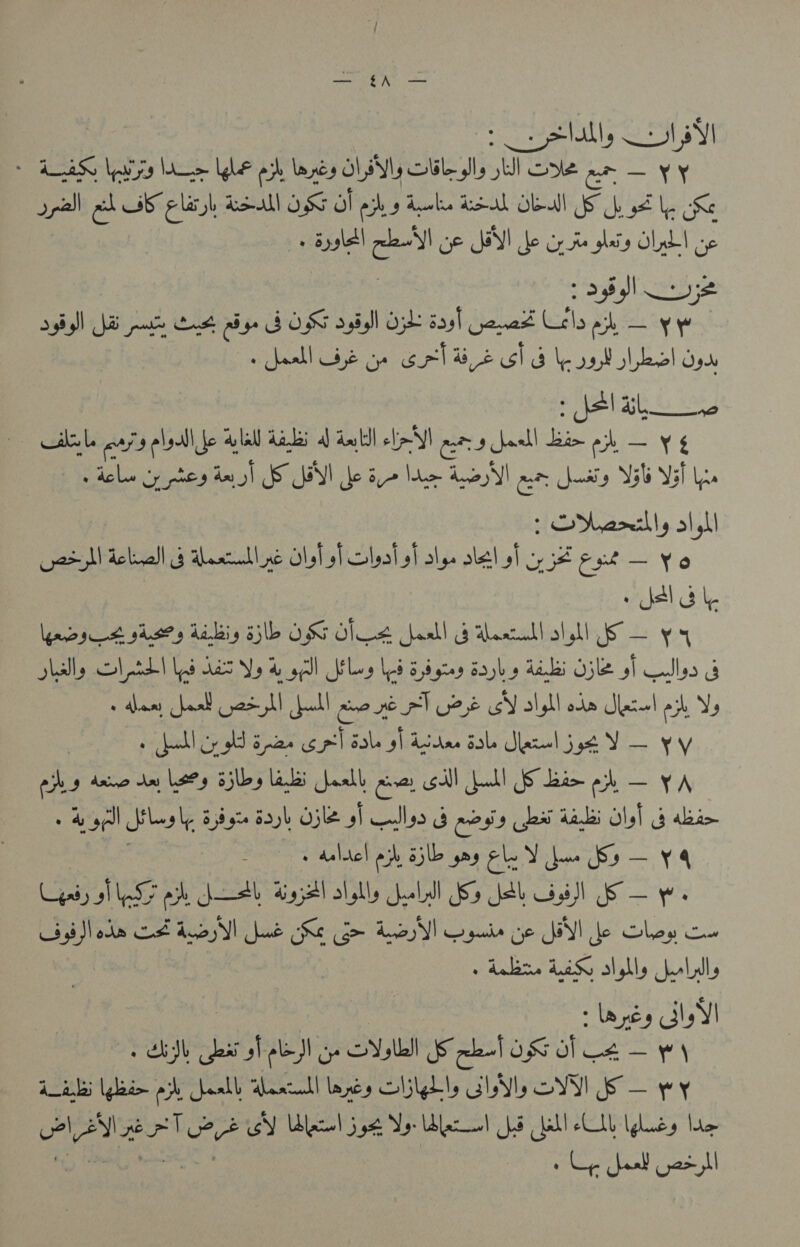 — ٤٨ —
الأفران والمداخن :
٢٢ — جميع محلات النار والوجاقات والأفران وغيرها يلزم عملها جيدا وترتيبها بكيفية
يمكن بها تحويل كل الدخان لمدخنة مناسبة ويلزم أن تكون المدخنة بارتفاع كاف لمنع الضرر
عن الجيران وتعلو مترين على الأقل عن الأسطح المجاورة .
مخزن الوقود :
٢٣ — يلزم دائما تخصيص أودة لخزن الوقود تكون فى موقع بحيث يتيسر نقل الوقود
بدون اضطرار للرور بها فى أى غرفة أخرى من غرف المعمل .
صيانة المحل :
٢٤ — يلزم حفظ المعمل وجميع الأجزاء التابعة له نظيفة للغاية على الدوام وترميم مايتلف
منها أوّلا فأوّلا وتغسل جميع الأرضية جيدا مرة على الأقل كل أربعة وعشرين ساعة .
المواد والمتحصلات :
٢٥ — ممنوع تخزين أو ايجاد مواد أو أدوات أو أوان غير المستعملة فى الصناعة المرخص
بها فى المحل .
٢٦ — كل المواد المستعملة فى المعمل يجب أن تكون طازة ونظيفة وصحية ويجب وضعها
فى دواليب أو مخازن نظيفة وباردة ومتوفرة فيها وسائل التهوية ولا تنفذ فيها الحشرات والغبار
ولا يلزم استعمال هذه المواد لأى غرض آخر غير صنع المسلى المرخص للعمل بعمله .
٢٧ — لا يجوز استعمال مادة معدنية أو مادة أخرى مضرة لتلوين المسلى .
٢٨ — يلزم حفظ كل المسلى الذى يصنع بالمعمل نظيفا وطازة وصحيا بعد صنعه ويلزم
حفظه فى أوان نظيفة تغطى وتوضع فى دواليب أو مخازن باردة متوفرة بها وسائل التهوية .
٢٩ — وكل مسلى لا يباع وهو طازة يلزم اعدامه .
٣٠ — كل الرفوف بالمحل وكل البراميل والمواد المخزونة بالمحل يلزم تركيبها أو رفعها
ست بوصات على الأقل عن منسوب الأرضية حتى يمكن غسل الأرضية تحت هذه الرفوف
والبراميل والمواد بكيفية منتظمة .
الأوانى وغيرها :
٣١ — يجب أن تكون أسطح كل الطاولات من الرخام أو تغطى بالزنك .
٣٢ — كل الآلات والأوانى والجهازات وغيرها المستعملة بالمعمل يلزم حفظها نظيفة
جدا وغسلها بالماء المغلى قبل استعمالها ولا يجوز استعمالها لأى غرض آخر غير الأغراض
المرخص للعمل بها .